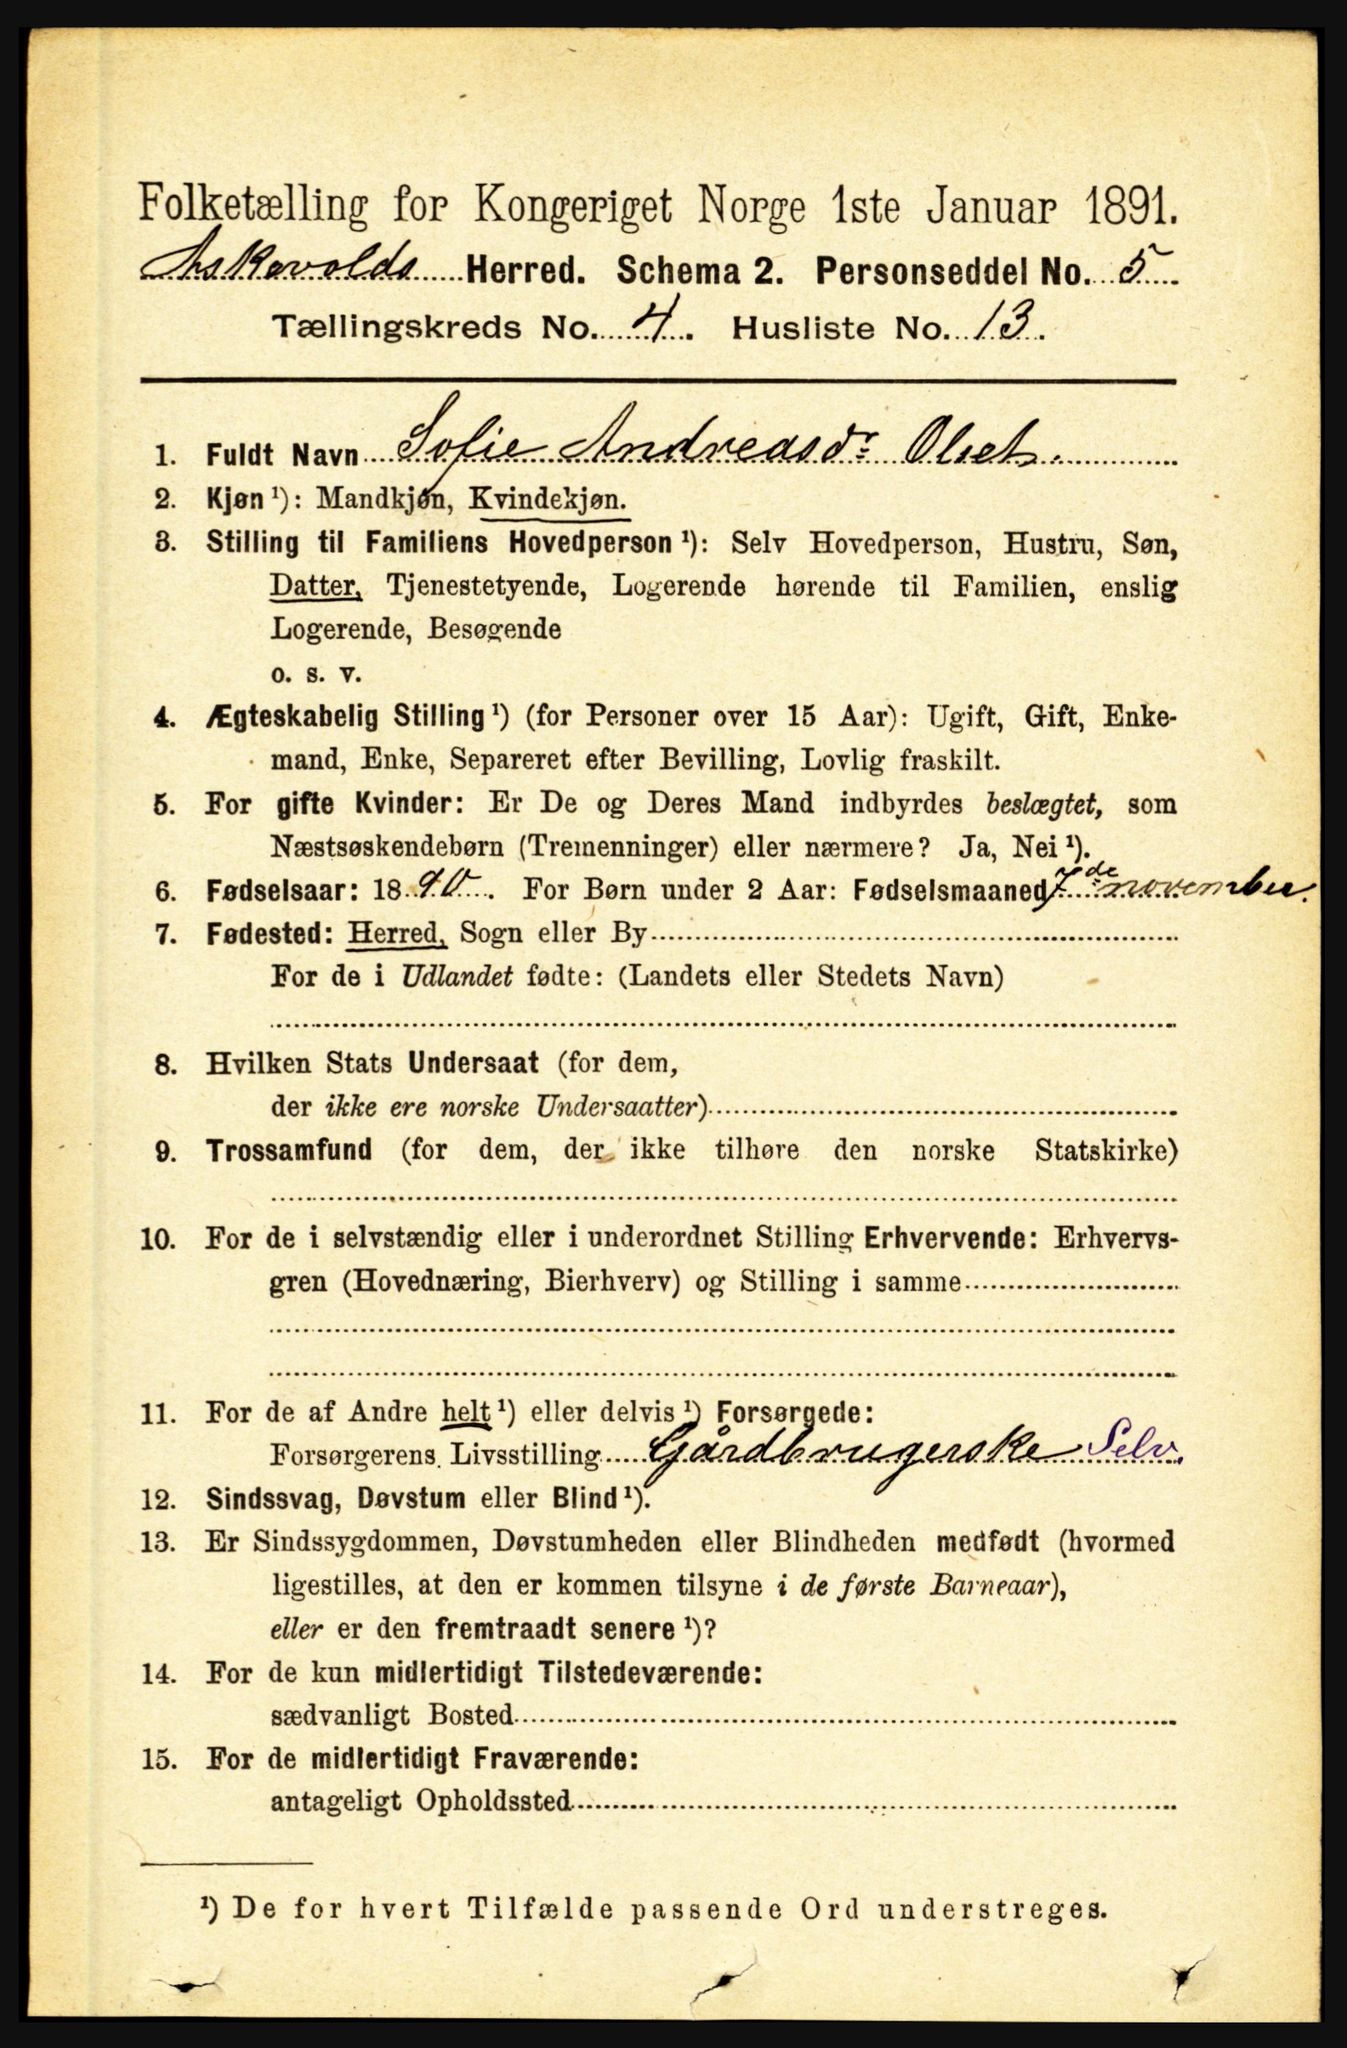 Folketælling for Kongeriget Norge 1ste Januar 1891.
Askevolds Herred. Schema 2. Personseddel No. 5
Tællingskreds No. 4. Husliste No. 13.
1. Fuldt Navn Sofie Andreasdr. Olset.
2. Kjøn ¹): Mandkjøn, Kvindekjøn.
3. Stilling til Familiens Hovedperson ¹): Selv Hovedperson, Hustru, Søn,
Datter, Tjenestetyende, Logerende hørende til Familien, enslig
Logerende, Besøgende
o. s. v.
4. Ægteskabelig Stilling ¹) (for Personer over 15 Aar): Ugift, Gift, Enke-
mand, Enke, Separeret efter Bevilling, Lovlig fraskilt.
5. For gifte Kvinder: Er De og Deres Mand indbyrdes beslægtet, som
Næstsøskendebørn (Tremenninger) eller nærmere? Ja, Nei ¹).
6. Fødselsaar: 1890. For Børn under 2 Aar: Fødselsmaaned 7de november.
7. Fødested: Herred, Sogn eller By
For de i Udlandet fødte: (Landets eller Stedets Navn)
8. Hvilken Stats Undersaat (for dem,
der ikke ere norske Undersaatter)
9. Trossamfund (for dem, der ikke tilhøre den norske Statskirke)
10. For de i selvstændig eller i underordnet Stilling Erhvervende: Erhvervs-
gren (Hovednæring, Bierhverv) og Stilling i samme
11. For de af Andre helt ¹) eller delvis ¹) Forsørgede:
Forsørgerens Livsstilling Gårdbrugerske Selv.
12. Sindssvag, Døvstum eller Blind ¹).
13. Er Sindssygdommen, Døvstumheden eller Blindheden medfødt (hvormed
ligestilles, at den er kommen tilsyne i de første Barneaar),
eller er den fremtraadt senere ¹)?
14. For de kun midlertidigt Tilstedeværende:
sædvanligt Bosted
15. For de midlertidigt Fraværende:
antageligt Opholdssted
¹) De for hvert Tilfælde passende Ord understreges.